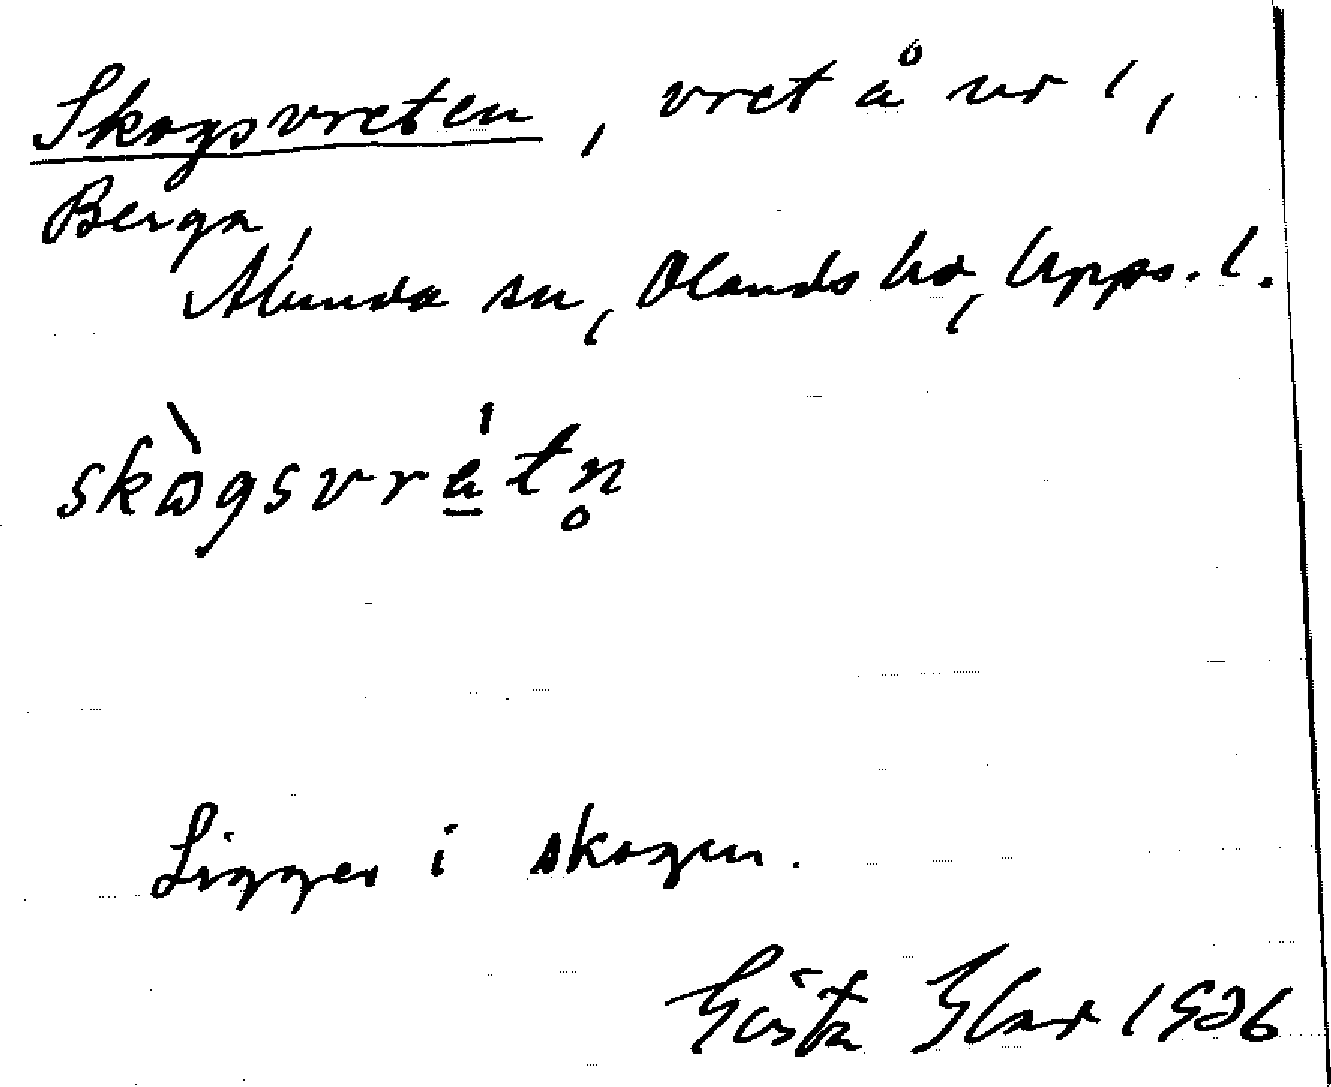 Skogsvreten, vret å nr 1,
Berga,
Alunda sn, Olands hd, Upps. l.
skògsvrétn̥
Ligger i skogen.
Gösta 1926